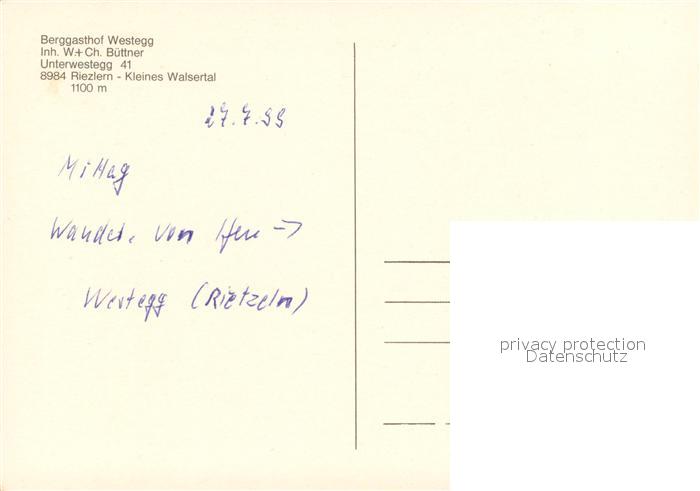 Berggasthof Westegg
Inh. W+Ch. Büttner
Unterwestegg 41
8984 Riezlern - Kleines Walsertal
1100 m
27.7.99
Mittag
Wander. von →
Westegg (Rietzeln)
privacy protection
Datenschutz